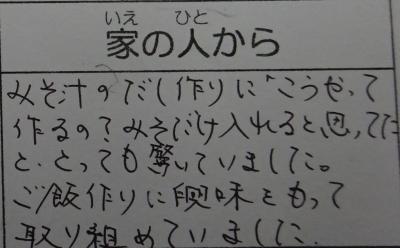 いえ ひと
家の人から
みそ汁のだし作りに「こうやって
作るの？みそだけ入れると思ってた
と、とっても驚いていました。
ご飯作りに興味をもって
取り組めていました